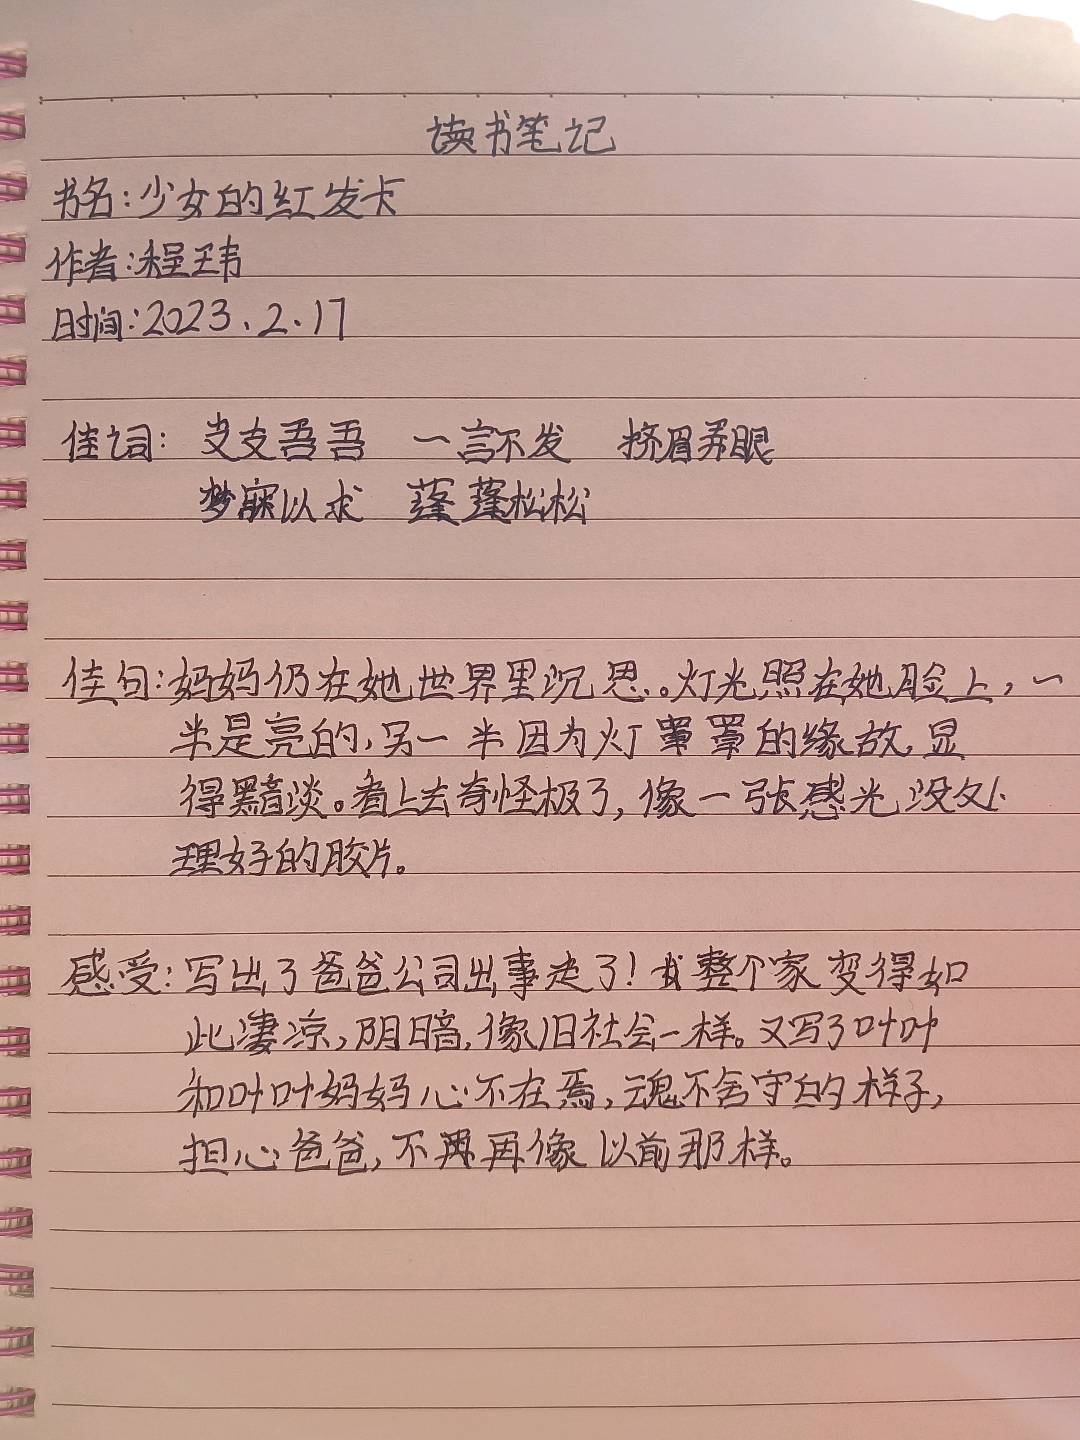 读书笔记
书名:少女的红发卡
作者:程玮
日时间:2023.2.17
佳词: 支支吾吾 一言不发 挤眉弄眼
梦寐以求 蓬蓬松松
佳句:妈妈仍在她世界里沉思。灯光照在她脸上,一
半是亮的,另一半因为灯罩罩的缘故,显
得黑暗淡。看上去奇怪极了,像一张感光没处
理好的胶片。
感受:写出了爸爸公司出事走了!我整个家变得如
此凄凉,阴暗,像旧社会一样。又写了叶叶
和叶叶妈妈心不在焉,魂不舍守的样子,
担心爸爸,不再再像以前那样。